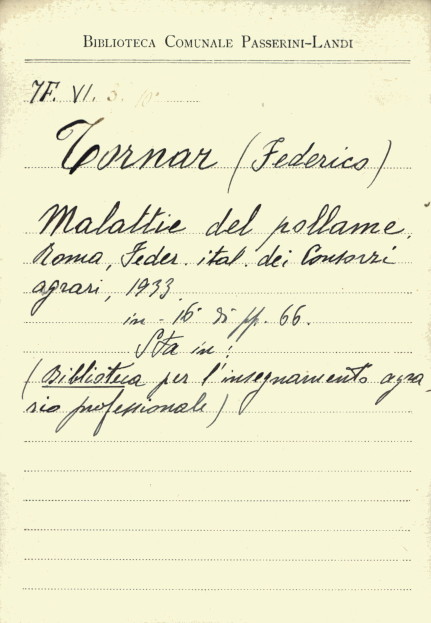 BIBLIOTECA COMUNALE PASSERINI-LANDI
7F. VI. 3. 10
Tornar (Federico)
Malattie del pollame.
Roma, Feder. ital. dei Consorzi
agrari, 1933.
in - 16° di pp. 66.
Sta in:
(Biblioteca per l'insegnamento agra-
rio professionale)